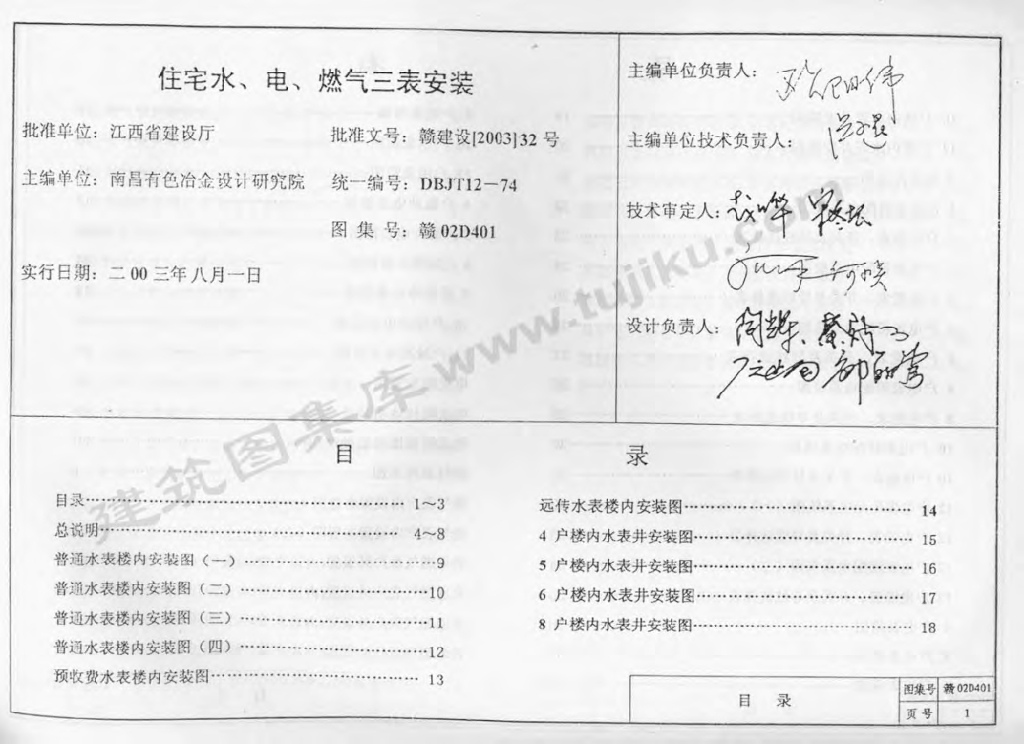 住宅水、电、燃气三表安装
批准单位：江西省建设厅 批准文号：赣建设[2003]32 号
主编单位：南昌有色冶金设计研究院 统一编号：DBJT12－74
图 集 号：赣 02D401
实行日期：二 00 三年八月一日
主编单位负责人：
主编单位技术负责人：
技术审定人：
设计负责人：
建筑图集库 www.tujiku.com
目 录
目录 1－3
总说明 4－8
普通水表楼内安装图（一） 9
普通水表楼内安装图（二） 10
普通水表楼内安装图（三） 11
普通水表楼内安装图（四） 12
预收费水表楼内安装图 13
远传水表楼内安装图 14
4 户楼内水表井安装图 15
5 户楼内水表井安装图 16
6 户楼内水表井安装图 17
8 户楼内水表井安装图 18
目 录
图集号 赣 02D401
页 号 1